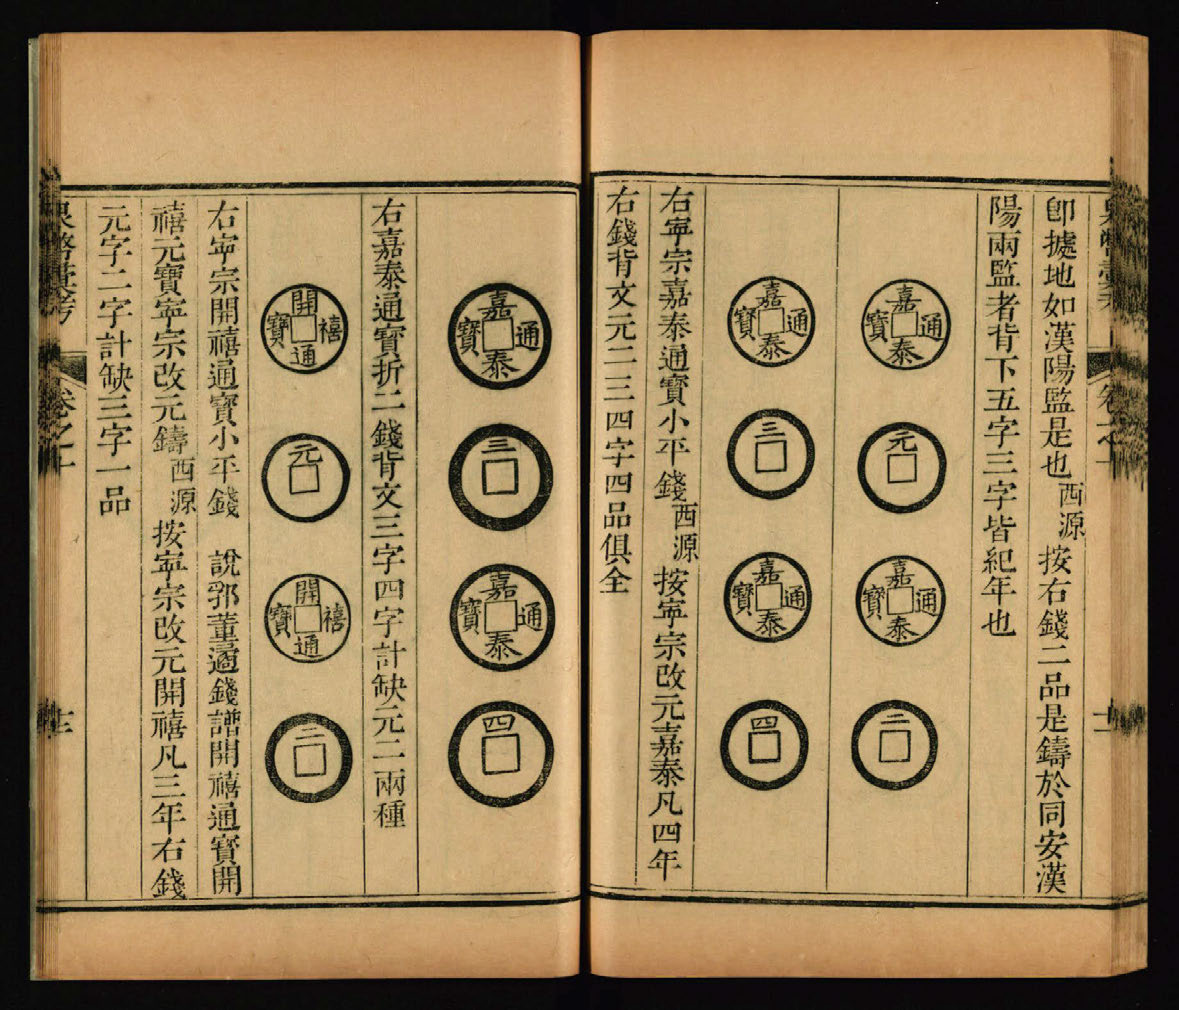 卽據地如漢陽監是也西源按右錢二品是鑄於同安漢
陽兩監者背下五字三字皆紀年也
嘉泰通寶
元
嘉泰通寶
二
嘉泰通寶
三
嘉泰通寶
四
右寧宗嘉泰通寶小平錢西源按寧宗改元嘉泰凡四年
右錢背文元二三四字四品俱全
嘉泰通寶
三
嘉泰通寶
四
右嘉泰通寶折二錢背文三字四字計缺元二兩種
開禧通寶
元
開禧通寶
二
右寧宗開禧通寶小平錢 說郛董逌錢譜開禧通寶開
禧元寶寧宗改元鑄西源按寧宗改元開禧凡三年右錢
元字二字計缺三字一品
卷之十